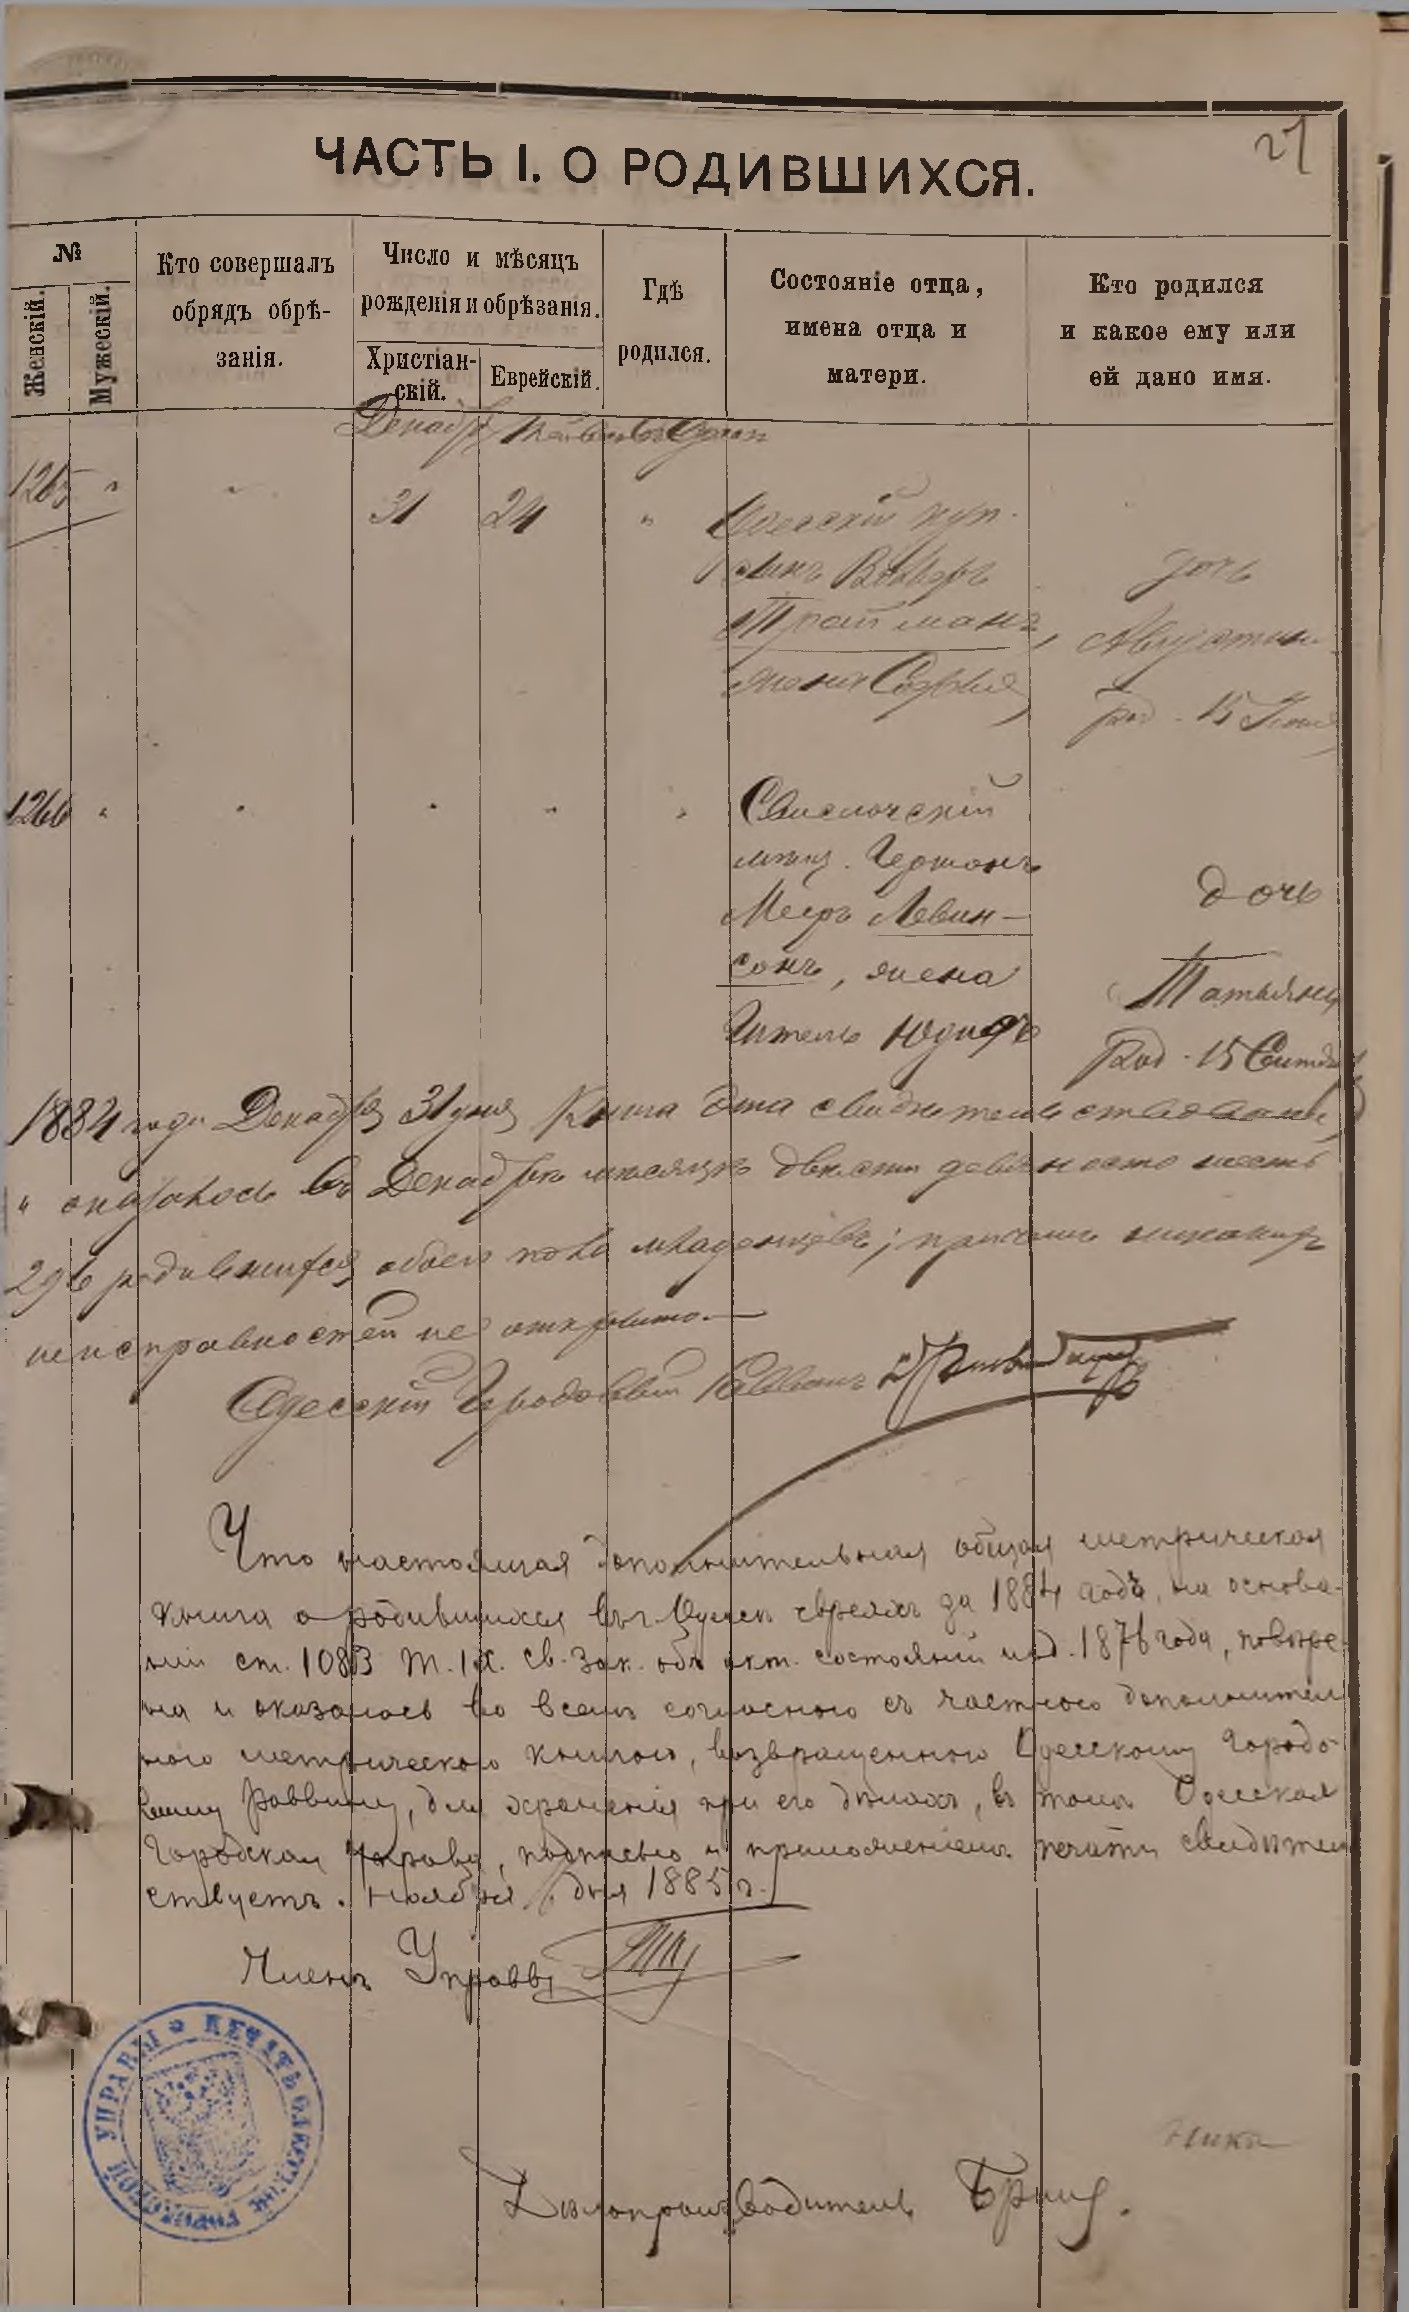 27
ЧАСТЬ I. О РОДИВШИХСЯ.
№
Женскій.
Мужескій.
Кто совершалъ
обрядъ обрѣ-
занія.
Число и мѣсяцъ
рожденія и обрѣзанія.
Христіан-
скій.
Еврейскій.
Гдѣ
родился.
Состояніе отца,
имена отца и
матери.
Кто родился
и какое ему или
ей дано имя.
1265 " " 31 24 " Одесскій куп-
дочь
жена Софія
род. 15
1266 " " " " " Свислочскій
мѣщ. Гершонъ
Мееръ Левин-
дочь
сонъ, жена
Татьяна
Гитель Юдифь
род. 15 Сентября
1884 года Декабря 31 дня Книга эта свидѣтельствована,
и оказалось въ Декабрѣ мѣсяцѣ двѣсти девяносто шесть
296 родившихся обоего пола младенцевъ; причемъ никакихъ
неисправностей не открыто.—
Одесскій Городовой Раввинъ
Что настоящая дополнительная общая метрическая
книга о родившихся въ г. Одессѣ евреяхъ за 1884 годъ, на основа-
ніи ст. 1083 Т. IX. Св. Зак. объ акт. состояній изд. 1876 года, повѣре-
на и оказалось во всемъ согласною съ частною дополнитель
ною метрическою книгою, возвращенною Одесскому Городо-
вому Раввину, для храненія при его дѣлахъ, въ томъ Одесская
Городская Управа, подписью и приложеніемъ печати свидѣтель
ствуетъ. Ноября дня 1885 г.
Членъ Управы
ПЕЧАТЬ ОДЕССКОЙ ГОРОДСКОЙ УПРАВЫ
Дѣлопроизводитель